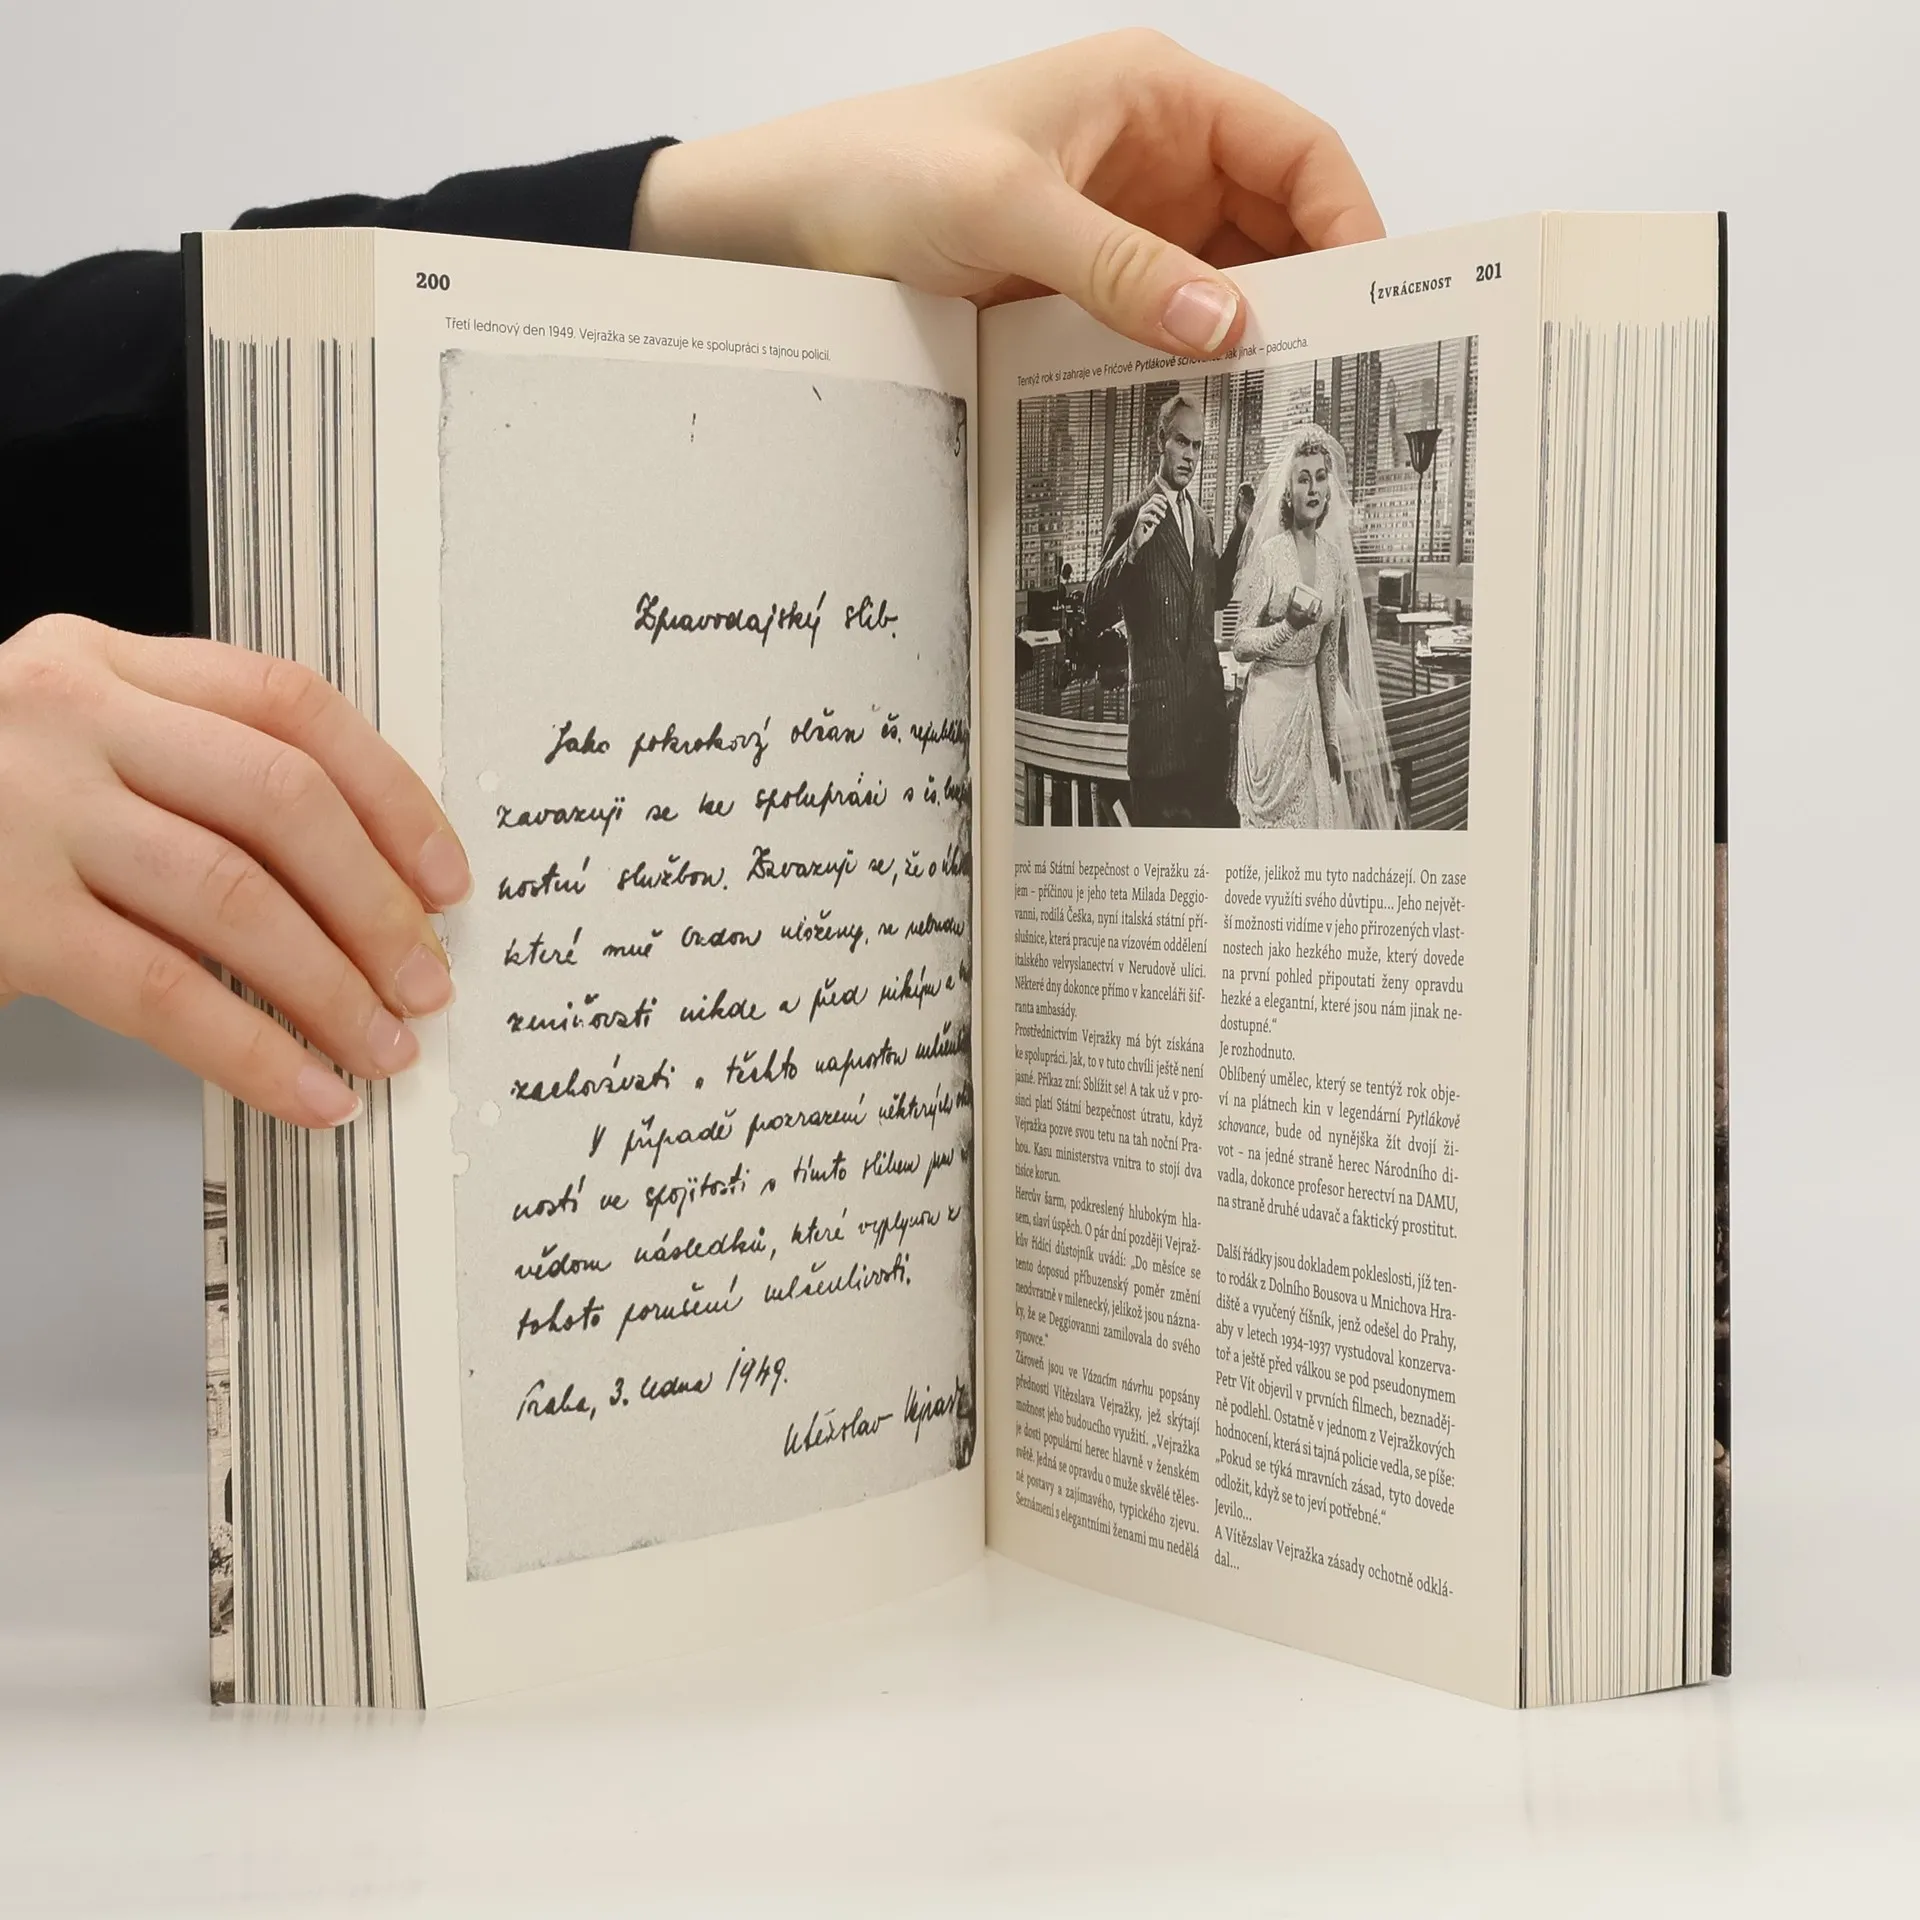 200
Třetí lednový den 1949. Vejražka se zavazuje ke spolupráci s tajnou policií.
5
Zpravodajský slib.
Jako pokrokový občan čs. republiky
zavazuji se ke spolupráci s čs. bezpeč
nostní službou. Zavazuji se, že o úko
které mně budou uloženy, se nebudu
zmiňovati nikde a před nikým a
zachovávati o těchto naprostou mlčen
V případě prozrazení některých
ností ve spojitosti s tímto slibem jsem
vědom následků, které vyplynou z
tohoto porušení mlčenlivosti.
Praha, 3. ledna 1949.
Vítězslav Vejražk
{ZVRÁCENOST 201
Tentýž rok si zahraje ve Fričově Pytlákově schovance. Jak jinak – padoucha.
proč má Státní bezpečnost o Vejražku zá-
jem – příčinou je jeho teta Milada Deggio-
vanni, rodilá Češka, nyní italská státní pří-
slušnice, která pracuje na vízovém oddělení
italského velvyslanectví v Nerudově ulici.
Některé dny dokonce přímo v kanceláři šif-
ranta ambasády.
Prostřednictvím Vejražky má být získána
ke spolupráci. Jak, to v tuto chvíli ještě není
jasné. Příkaz zní: Sblížit se! A tak už v pro-
sinci platí Státní bezpečnost útratu, když
Vejražka pozve svou tetu na tah noční Pra-
hou. Kasu ministerstva vnitra to stojí dva
tisíce korun.
Hercův šarm, podkreslený hlubokým hla-
sem, slaví úspěch. O pár dní později Vejraž-
kův řídící důstojník uvádí: „Do měsíce se
tento doposud příbuzenský poměr změní
neodvratně v milenecký, jelikož jsou názna-
ky, že se Deggiovanni zamilovala do svého
synovce.“
Zároveň jsou ve Vázacím návrhu popsány
přednosti Vítězslava Vejražky, jež skýtají
možnost jeho budoucího využití. „Vejražka
je dosti populární herec hlavně v ženském
světě. Jedná se opravdu o muže skvělé těles-
né postavy a zajímavého, typického zjevu.
Seznámení s elegantními ženami mu nedělá
potíže, jelikož mu tyto nadcházejí. On zase
dovede využíti svého důvtipu... Jeho největ-
ší možnosti vidíme v jeho přirozených vlast-
nostech jako hezkého muže, který dovede
na první pohled připoutati ženy opravdu
hezké a elegantní, které jsou nám jinak ne-
dostupné.“
Je rozhodnuto.
Oblíbený umělec, který se tentýž rok obje-
ví na plátnech kin v legendární Pytlákově
schovance, bude od nynějška žít dvojí ži-
vot – na jedné straně herec Národního di-
vadla, dokonce profesor herectví na DAMU,
na straně druhé udavač a faktický prostitut.
Další řádky jsou dokladem pokleslosti, jíž ten-
to rodák z Dolního Bousova u Mnichova Hra-
diště a vyučený číšník, jenž odešel do Prahy,
aby v letech 1934-1937 vystudoval konzerva-
toř a ještě před válkou se pod pseudonymem
Petr Vít objevil v prvních filmech, beznaděj-
ně podlehl. Ostatně v jednom z Vejražkových
hodnocení, která si tajná policie vedla, se píše:
„Pokud se týká mravních zásad, tyto dovede
odložit, když se to jeví potřebné.“
Jevilo...
A Vítězslav Vejražka zásady ochotně odklá-
dal...